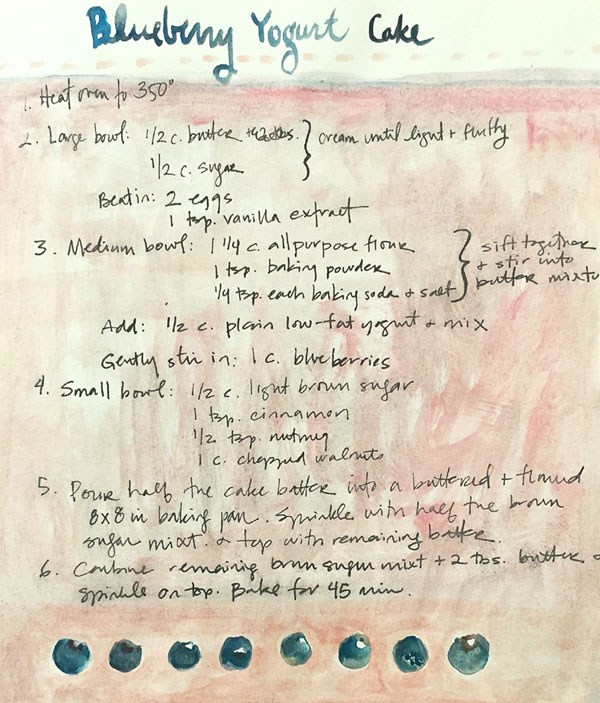 Blueberry Yogurt Cake
1. Heat oven to 350°
2. Large bowl: 1/2 c. butter } cream until light + fluffy
1/2 c. sugar
Beat in: 2 eggs
1 tsp. vanilla extract
3. Medium bowl: 1 1/4 c. all purpose flour } sift together
1 tsp. baking powder + stir into
1/4 tsp. each baking soda + salt butter mixture
Add: 1/2 c. plain low-fat yogurt + mix
Gently stir in: 1 c. blueberries
4. Small bowl: 1/2 c. light brown sugar
1 tsp. cinnamon
1/2 tsp. nutmeg
1 c. chopped walnuts
5. Pour half the cake batter into a buttered + floured
8x8 in baking pan. Sprinkle with half the brown
sugar mixt. + top with remaining batter.
6. Combine remaining brown sugar mixt + 2 tbs. butter +
sprinkle on top. Bake for 45 min.